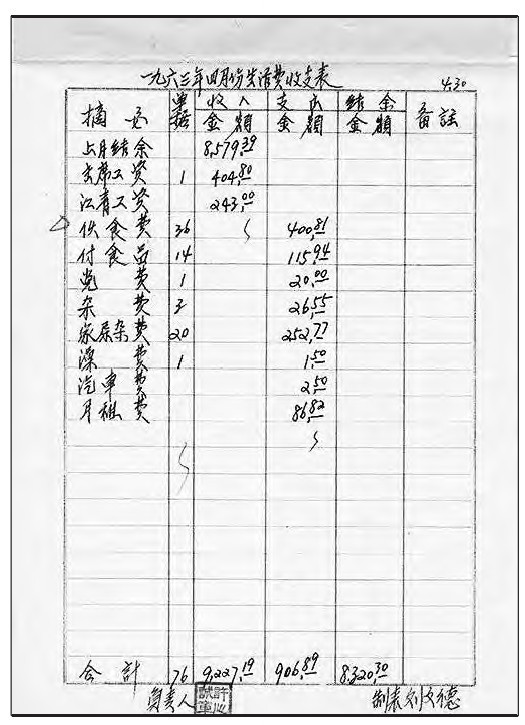 一九六三年四月份生活费收支表 4.30
摘要 单据 收入 支出 結余 备註
金額 金額 金額
上月结余 8,579.39
主席工资 1 404.80
江青工资 243.00
伙食费 36 400.81
付食品 14 115.94
党费 1 20.00
杂费 3 26.55
家属杂费 20 252.77
澡费 1 1.50
汽車费 2.50
月租费 86.82
合計 76 9,227.19 906.89 8,320.30
负責人 制表刘文德